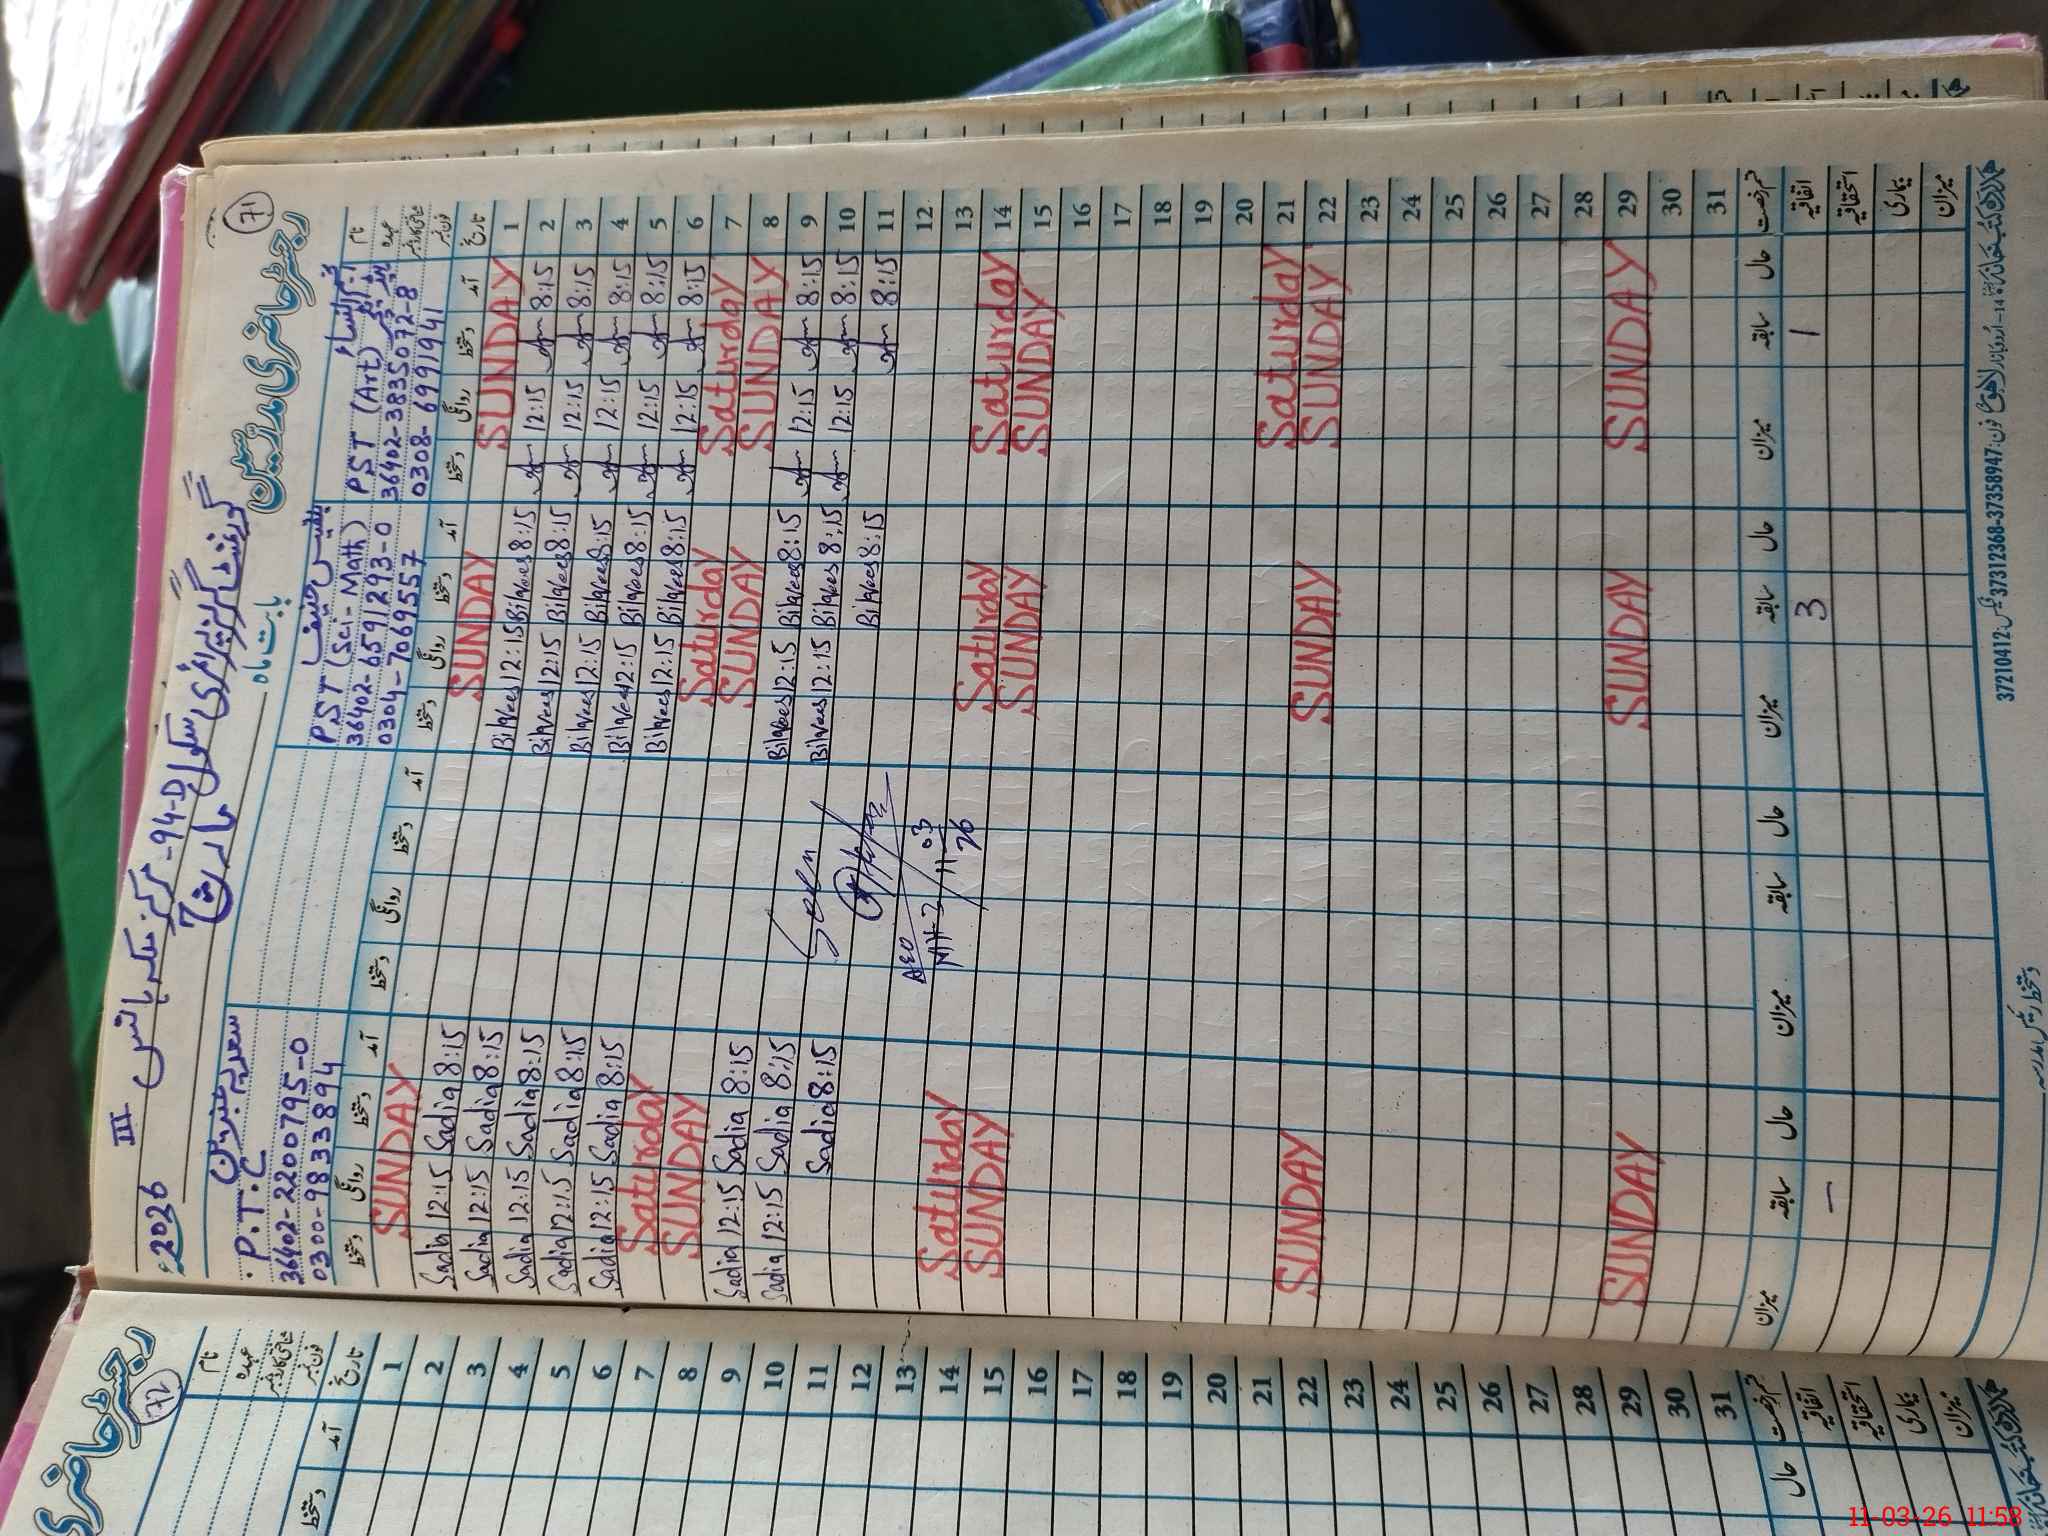 71
رجسٹر حاضری مدرسین
گورنمنٹ گرلز پرائمری سکول
94-D مرکز ملکہ ہانس
بابت ماہ
III
2026ء
نام
عہدہ
شناختی کارڈ نمبر
فون نمبر
PST (Art)
36402-3835072-8
0308-6991941
بلقیس حنیف
PST (Sci-Math)
36402-6591293-0
0304-7069557
سعدیہ
P.T.C
36402-2200795-0
0300-9833894
تاریخ آمد دستخط روانگی دستخط آمد دستخط روانگی دستخط آمد دستخط روانگی دستخط آمد دستخط روانگی دستخط
1 SUNDAY SUNDAY SUNDAY
2 8:15 12:15 8:15 Bilqees 12:15 Bilqees 8:15 Sadia 12:15 Sadia
3 8:15 12:15 8:15 Bilqees 12:15 Bilqees 8:15 Sadia 12:15 Sadia
4 8:15 12:15 8:15 Bilqees 12:15 Bilqees 8:15 Sadia 12:15 Sadia
5 8:15 12:15 8:15 Bilqees 12:15 Bilqees 8:15 Sadia 12:15 Sadia
6 8:15 12:15 8:15 Bilqees 12:15 Bilqees 8:15 Sadia 12:15 Sadia
7 Saturday Saturday Saturday
8 SUNDAY SUNDAY SUNDAY
9 8:15 12:15 8:15 Bilqees 12:15 Bilqees 8:15 Sadia 12:15 Sadia
10 8:15 12:15 8:15 Bilqees 12:15 Bilqees 8:15 Sadia 12:15 Sadia
11 8:15 8:15 Bilqees 8:15 Sadia
Seen
AEO
11-03
26
12
13
14 Saturday Saturday Saturday
15 SUNDAY SUNDAY SUNDAY
16
17
18
19
20
21 Saturday
22 SUNDAY SUNDAY SUNDAY
23
24
25
26
27
28
29 SUNDAY SUNDAY SUNDAY
30
31
قسم رخصت حال سابقہ میزان حال سابقہ میزان حال سابقہ میزان حال سابقہ میزان
اتفاقیہ 1 3 –
استحقاقیہ
بیماری
میزان
فون: 37358947-37312368 فیکس: 37210412
72
رجسٹر حاضری
نام
عہدہ
شناختی کارڈ نمبر
فون نمبر
تاریخ آمد دستخط
1
2
3
4
5
6
7
8
9
10
11
12
13
14
15
16
17
18
19
20
21
22
23
24
25
26
27
28
29
30
31
قسم رخصت حال
اتفاقیہ
استحقاقیہ
بیماری
میزان
11-03-26 11:58